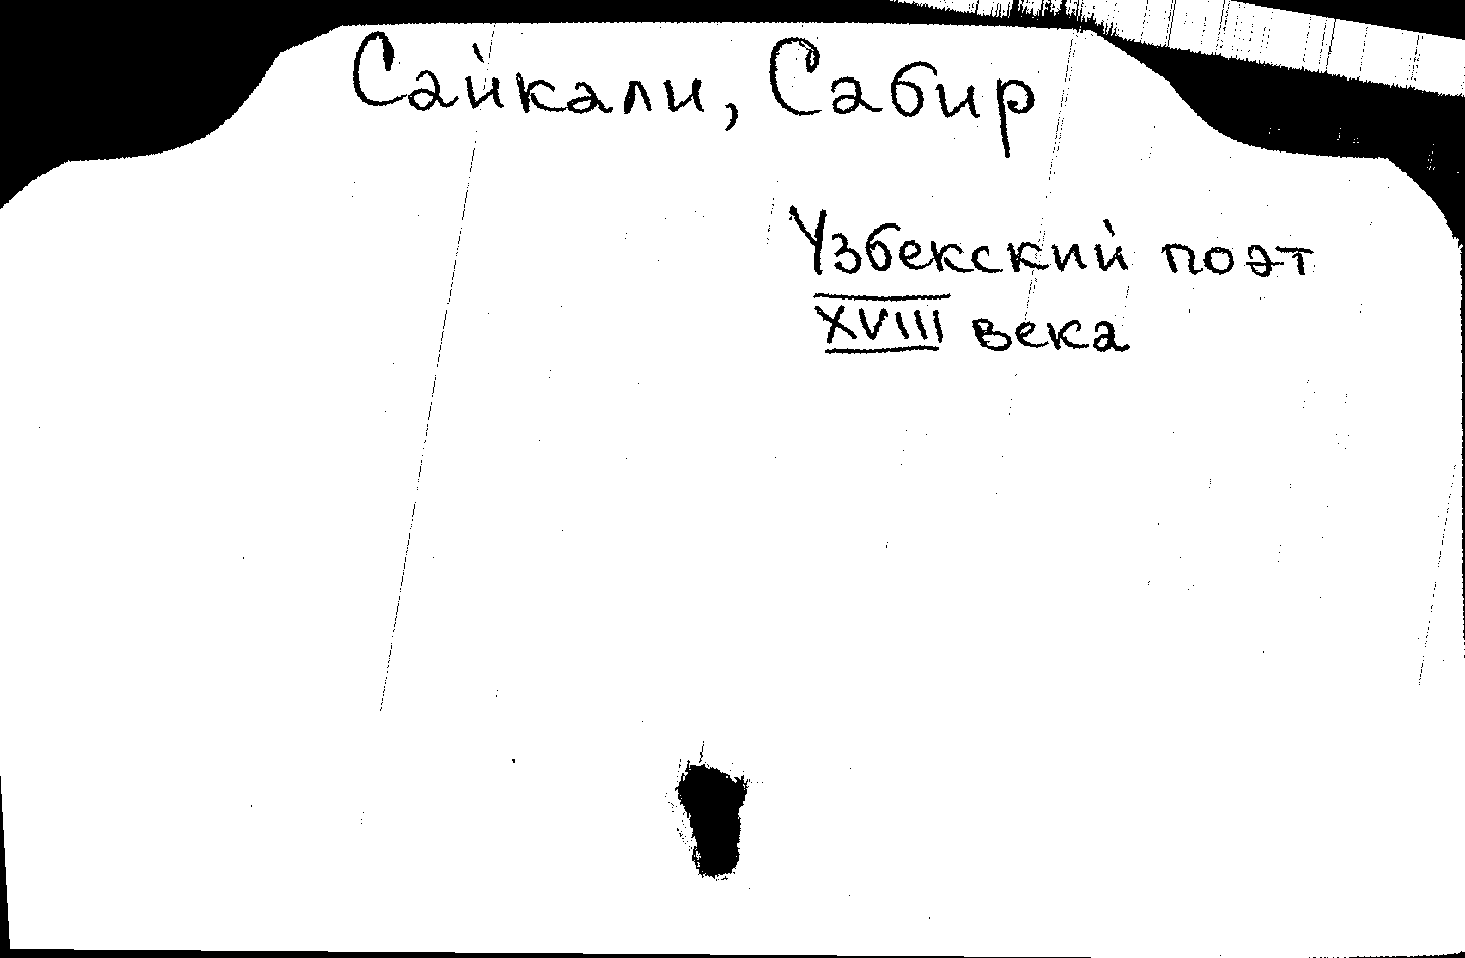 Сайкали, Сабир
Узбекский поэт
XVIII века